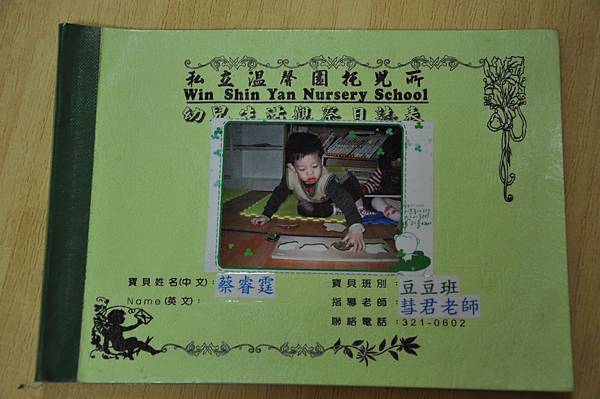 私立温聲園托兒所
Win Shin Yan Nursery School
幼兒生活觀察日誌表
寶貝姓名(中文)：蔡睿霆
Name(英文)：
寶貝班別：豆豆班
指導老師：彗君老師
聯絡電話：321-0602